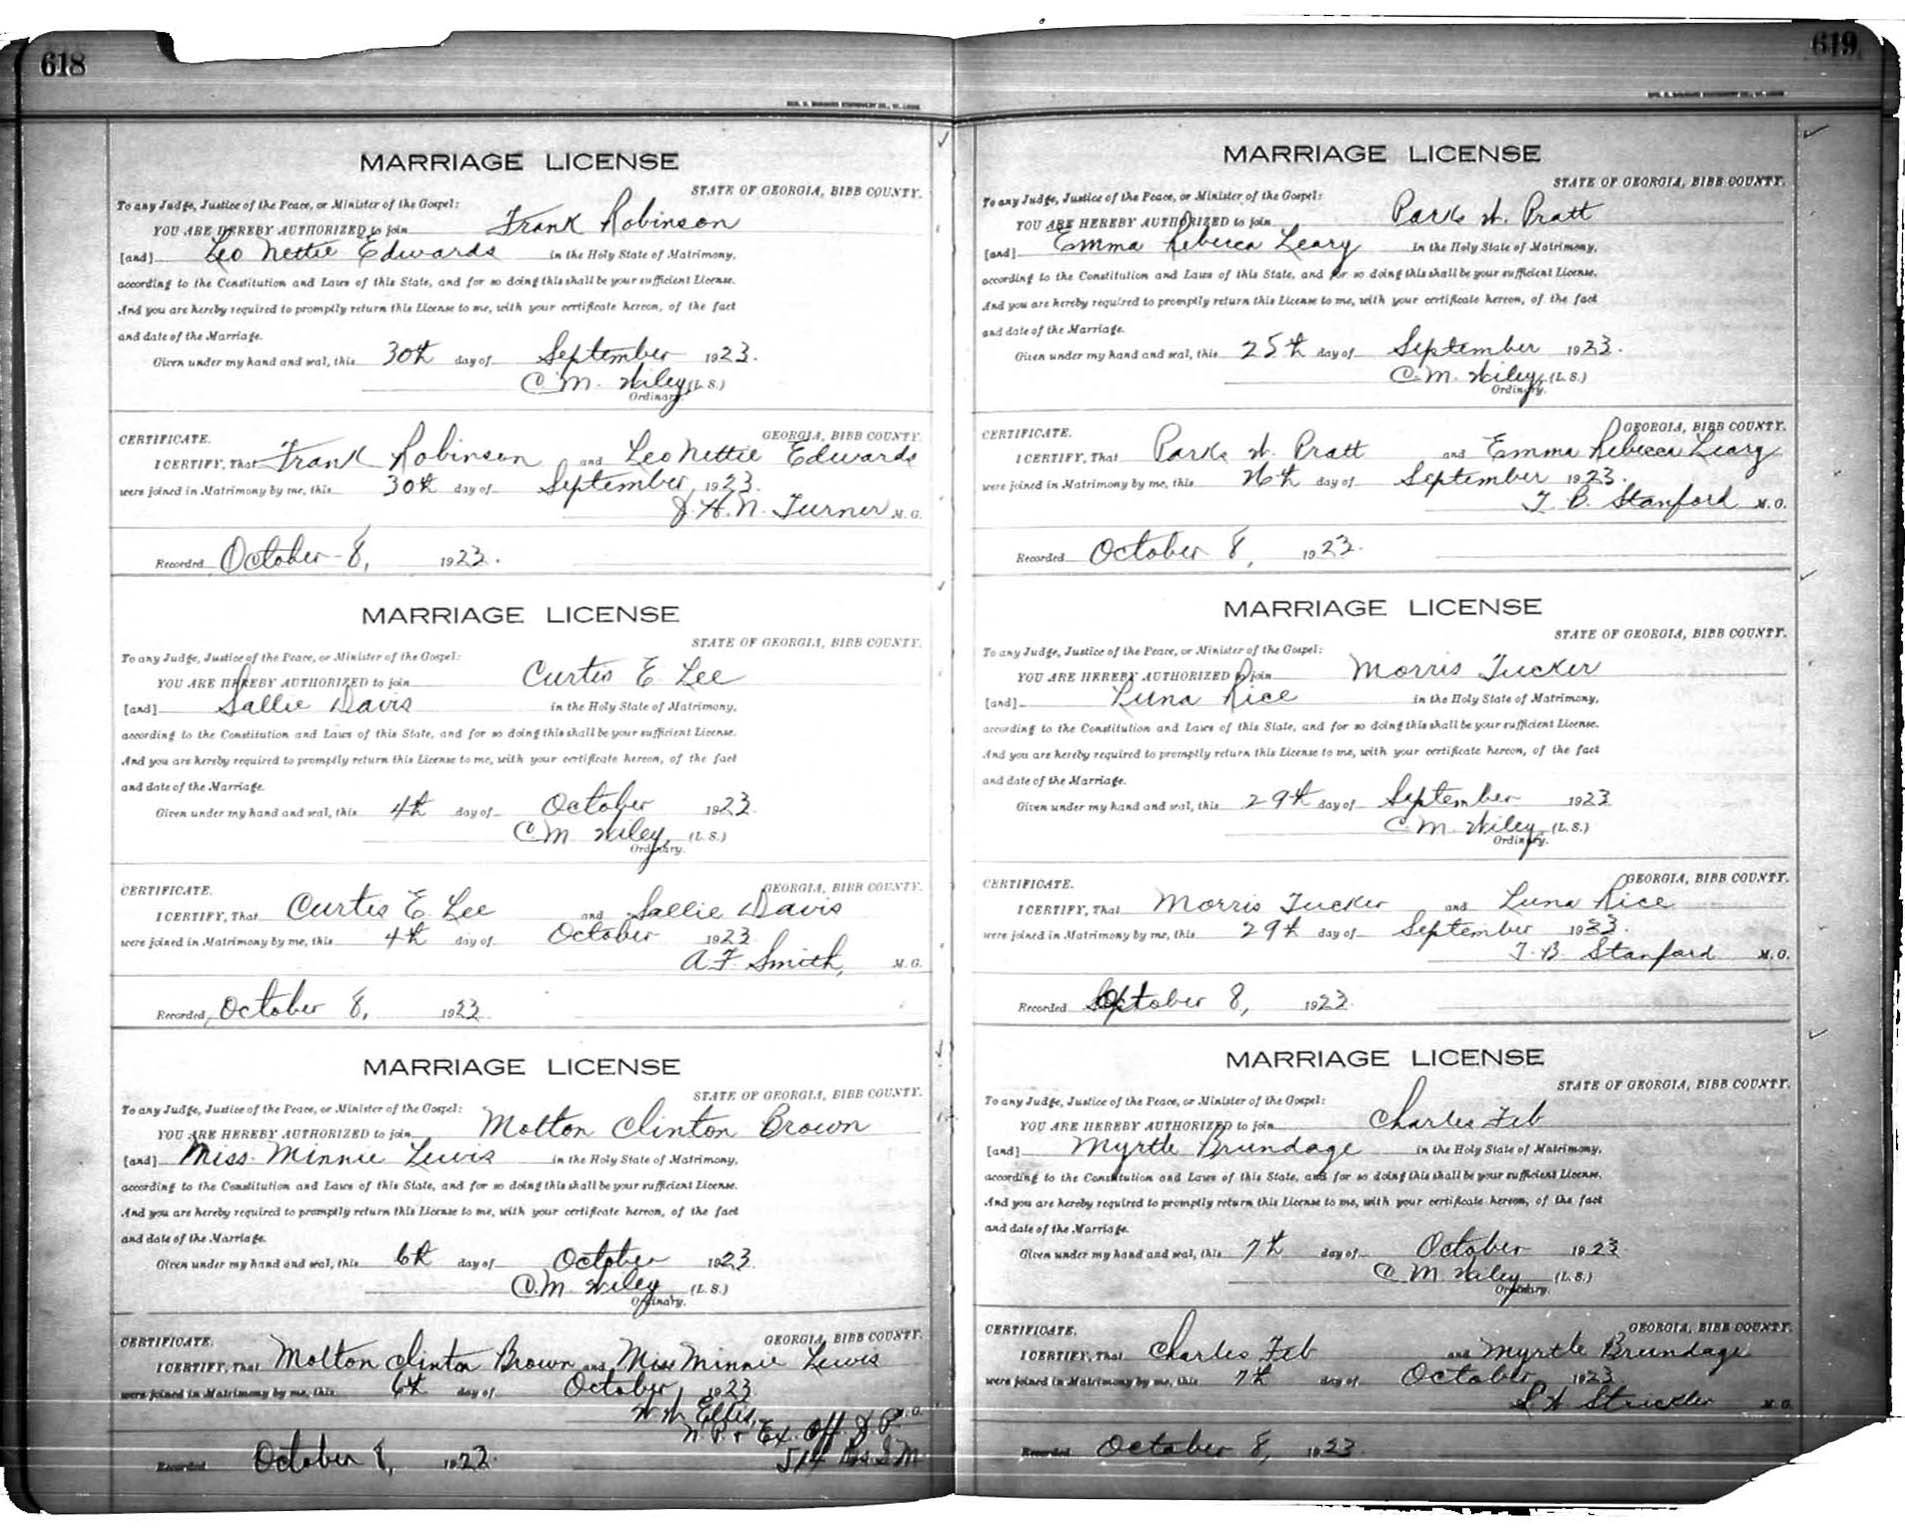 618
GEO. D. BARNARD STATIONERY CO., ST. LOUIS
MARRIAGE LICENSE
STATE OF GEORGIA, BIBB COUNTY.
To any Judge, Justice of the Peace, or Minister of the Gospel:
YOU ARE HEREBY AUTHORIZED to join Frank Robinson
[and] Leo Nettie Edwards in the Holy State of Matrimony,
according to the Constitution and Laws of this State, and for so doing this shall be your sufficient License.
And you are hereby required to promptly return this License to me, with your certificate hereon, of the fact
and date of the Marriage.
Given under my hand and seal, this 30th day of September 1923.
C. M. Wiley (L. S.)
Ordinary.
CERTIFICATE. GEORGIA, BIBB COUNTY.
I CERTIFY, That Frank Robinson and Leo Nettie Edwards
were joined in Matrimony by me, this 30th day of September, 1923.
J. H. N. Turner M. G.
Recorded October 8, 1923.
MARRIAGE LICENSE
STATE OF GEORGIA, BIBB COUNTY.
To any Judge, Justice of the Peace, or Minister of the Gospel:
YOU ARE HEREBY AUTHORIZED to join Curtis E. Lee
[and] Sallie Davis in the Holy State of Matrimony,
according to the Constitution and Laws of this State, and for so doing this shall be your sufficient License.
And you are hereby required to promptly return this License to me, with your certificate hereon, of the fact
and date of the Marriage.
Given under my hand and seal, this 4th day of October 1923
C. M. Wiley, (L. S.)
Ordinary.
CERTIFICATE. GEORGIA, BIBB COUNTY.
I CERTIFY, That Curtis E. Lee and Sallie Davis
were joined in Matrimony by me, this 4th day of October 1923
A. F. Smith, M. G.
Recorded October 8, 1923
MARRIAGE LICENSE
STATE OF GEORGIA, BIBB COUNTY.
To any Judge, Justice of the Peace, or Minister of the Gospel:
YOU ARE HEREBY AUTHORIZED to join Molton Clinton Brown
[and] Miss Minnie Lewis in the Holy State of Matrimony,
according to the Constitution and Laws of this State, and for so doing this shall be your sufficient License.
And you are hereby required to promptly return this License to me, with your certificate hereon, of the fact
and date of the Marriage.
Given under my hand and seal, this 6th day of October 1923
C. M. Wiley (L. S.)
Ordinary.
CERTIFICATE. GEORGIA, BIBB COUNTY.
I CERTIFY, That Molton Clinton Brown and Miss Minnie Lewis
were joined in Matrimony by me, this 6th day of October, 1923
W. W. Ellis, M. G.
N. P. & Ex. Off. J. P.
Recorded October 8, 1923. 514 Dis. G. M.
619
GEO. D. BARNARD STATIONERY CO., ST. LOUIS
MARRIAGE LICENSE
STATE OF GEORGIA, BIBB COUNTY.
To any Judge, Justice of the Peace, or Minister of the Gospel:
YOU ARE HEREBY AUTHORIZED to join Parks W. Pratt
[and] Emma Rebecca Leary in the Holy State of Matrimony,
according to the Constitution and Laws of this State, and for so doing this shall be your sufficient License.
And you are hereby required to promptly return this License to me, with your certificate hereon, of the fact
and date of the Marriage.
Given under my hand and seal, this 25th day of September 1923.
C. M. Wiley, (L. S.)
Ordinary.
CERTIFICATE. GEORGIA, BIBB COUNTY.
I CERTIFY, That Parks W. Pratt and Emma Rebecca Leary
were joined in Matrimony by me, this 26th day of September 1923.
T. B. Stanford M. G.
Recorded October 8, 1923.
MARRIAGE LICENSE
STATE OF GEORGIA, BIBB COUNTY.
To any Judge, Justice of the Peace, or Minister of the Gospel:
YOU ARE HEREBY AUTHORIZED to join Morris Tucker
[and] Luna Rice in the Holy State of Matrimony,
according to the Constitution and Laws of this State, and for so doing this shall be your sufficient License.
And you are hereby required to promptly return this License to me, with your certificate hereon, of the fact
and date of the Marriage.
Given under my hand and seal, this 29th day of September 1923
C. M. Wiley (L. S.)
Ordinary.
CERTIFICATE. GEORGIA, BIBB COUNTY.
I CERTIFY, That Morris Tucker and Luna Rice
were joined in Matrimony by me, this 29th day of September 1923.
T. B. Stanford M. G.
Recorded October 8, 1923.
MARRIAGE LICENSE
STATE OF GEORGIA, BIBB COUNTY.
To any Judge, Justice of the Peace, or Minister of the Gospel:
YOU ARE HEREBY AUTHORIZED to join Charles Feb
[and] Myrtle Brundage in the Holy State of Matrimony,
according to the Constitution and Laws of this State, and for so doing this shall be your sufficient License.
And you are hereby required to promptly return this License to me, with your certificate hereon, of the fact
and date of the Marriage.
Given under my hand and seal, this 7th day of October 1923
C. M. Wiley (L. S.)
Ordinary.
CERTIFICATE. GEORGIA, BIBB COUNTY.
I CERTIFY, That Charles Feb and Myrtle Brundage
were joined in Matrimony by me, this 7th day of October 1923
S. W. Strickler M. G.
Recorded October 8, 1923.